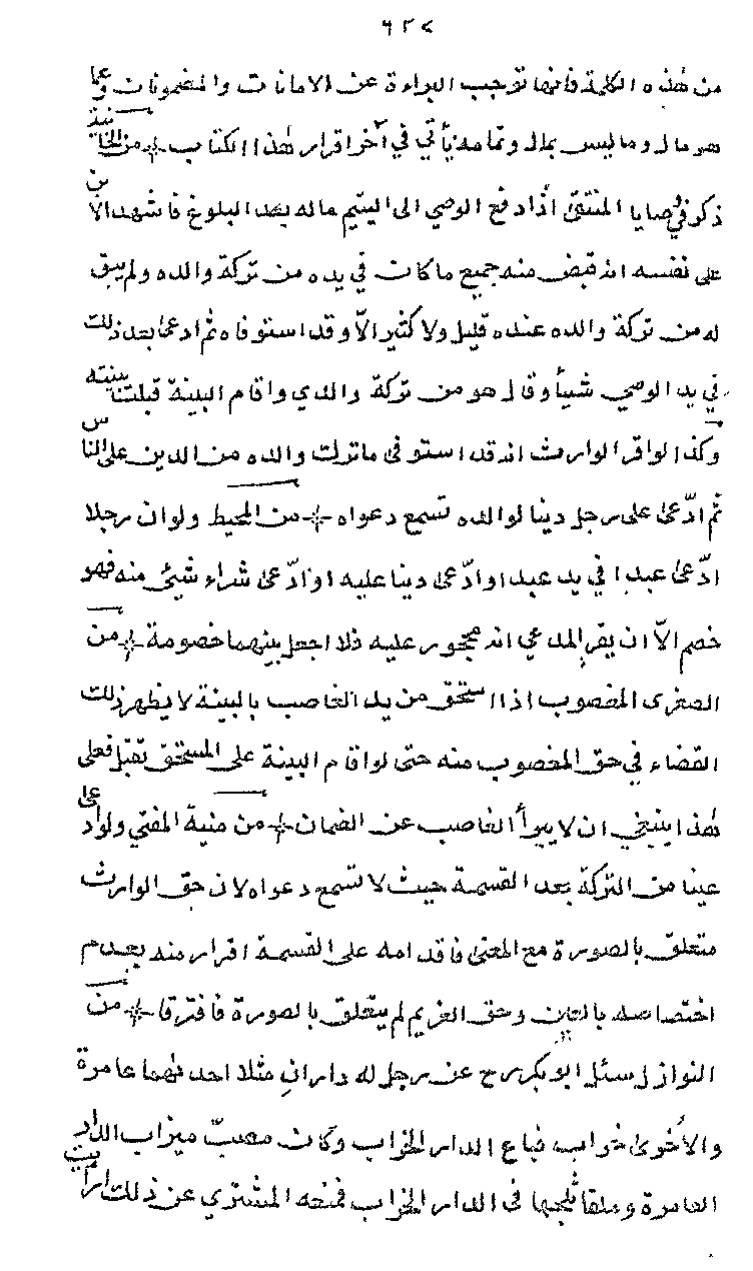 ٦٢٧
من هذه الكلمة فانها توجب البراءة عن الامانات والمضمونات وعما
هو مال وما ليس بمال وتمامه يأتي في آخر اقرار هذا الكتاب من الخانية
ذكر في وصايا المنتقى اذا دفع الوصي الى اليتيم ماله بعد البلوغ فاشهد الابن
على نفسه انه قبض منه جميع ما كان في يده من تركة والده ولم يبق
له من تركة والده عنده قليل ولا كثير الّا وقد استوفاه ثم ادعى بعد ذلك
في يد الوصي شيأ وقال هو من تركة والدي واقام البينة قبلت بينته
وكذا لو اقر الوارث انه قد استوفى ما ترك والده من الدين على الناس
ثم ادّعى على رجل دينا لوالده تسمع دعواه من المحيط ولو ان رجلا
ادّعى عبدا في يد عبد او ادّعى دينا عليه او ادّعى شراء شيئ منه فهو
خصم الّا ان يقر المدعي انه محجور عليه فلا اجعل بينهما خصومة من
الصغرى المغصوب اذا استحق من يد الغاصب بالبينة لا يظهر ذلك
القضاء في حق المغصوب منه حتى لو اقام البينة على المستحق تقبل فعلى
هذا ينبغي ان لا يبرأ الغاصب عن الضمان من منية المفتي ولو ادعى
عينا من التركة بعد القسمة حيث لا تسمع دعواه لان حق الوارث
متعلق بالصورة مع المعنى فاقدامه على القسمة اقرار منه بعدم
اختصاصه بالعين وحق الغريم لم يتعلق بالصورة فافترقا من
النوازل سئل ابو بكر رح عن رجل له داران مثلا احدىهما عامرة
والأخرى خراب فباع الدار الخراب وكان مصبّ ميزاب الدار
العامرة وملقا ثلجها في الدار الخراب فمنعه المشتري عن ذلك ارأيت